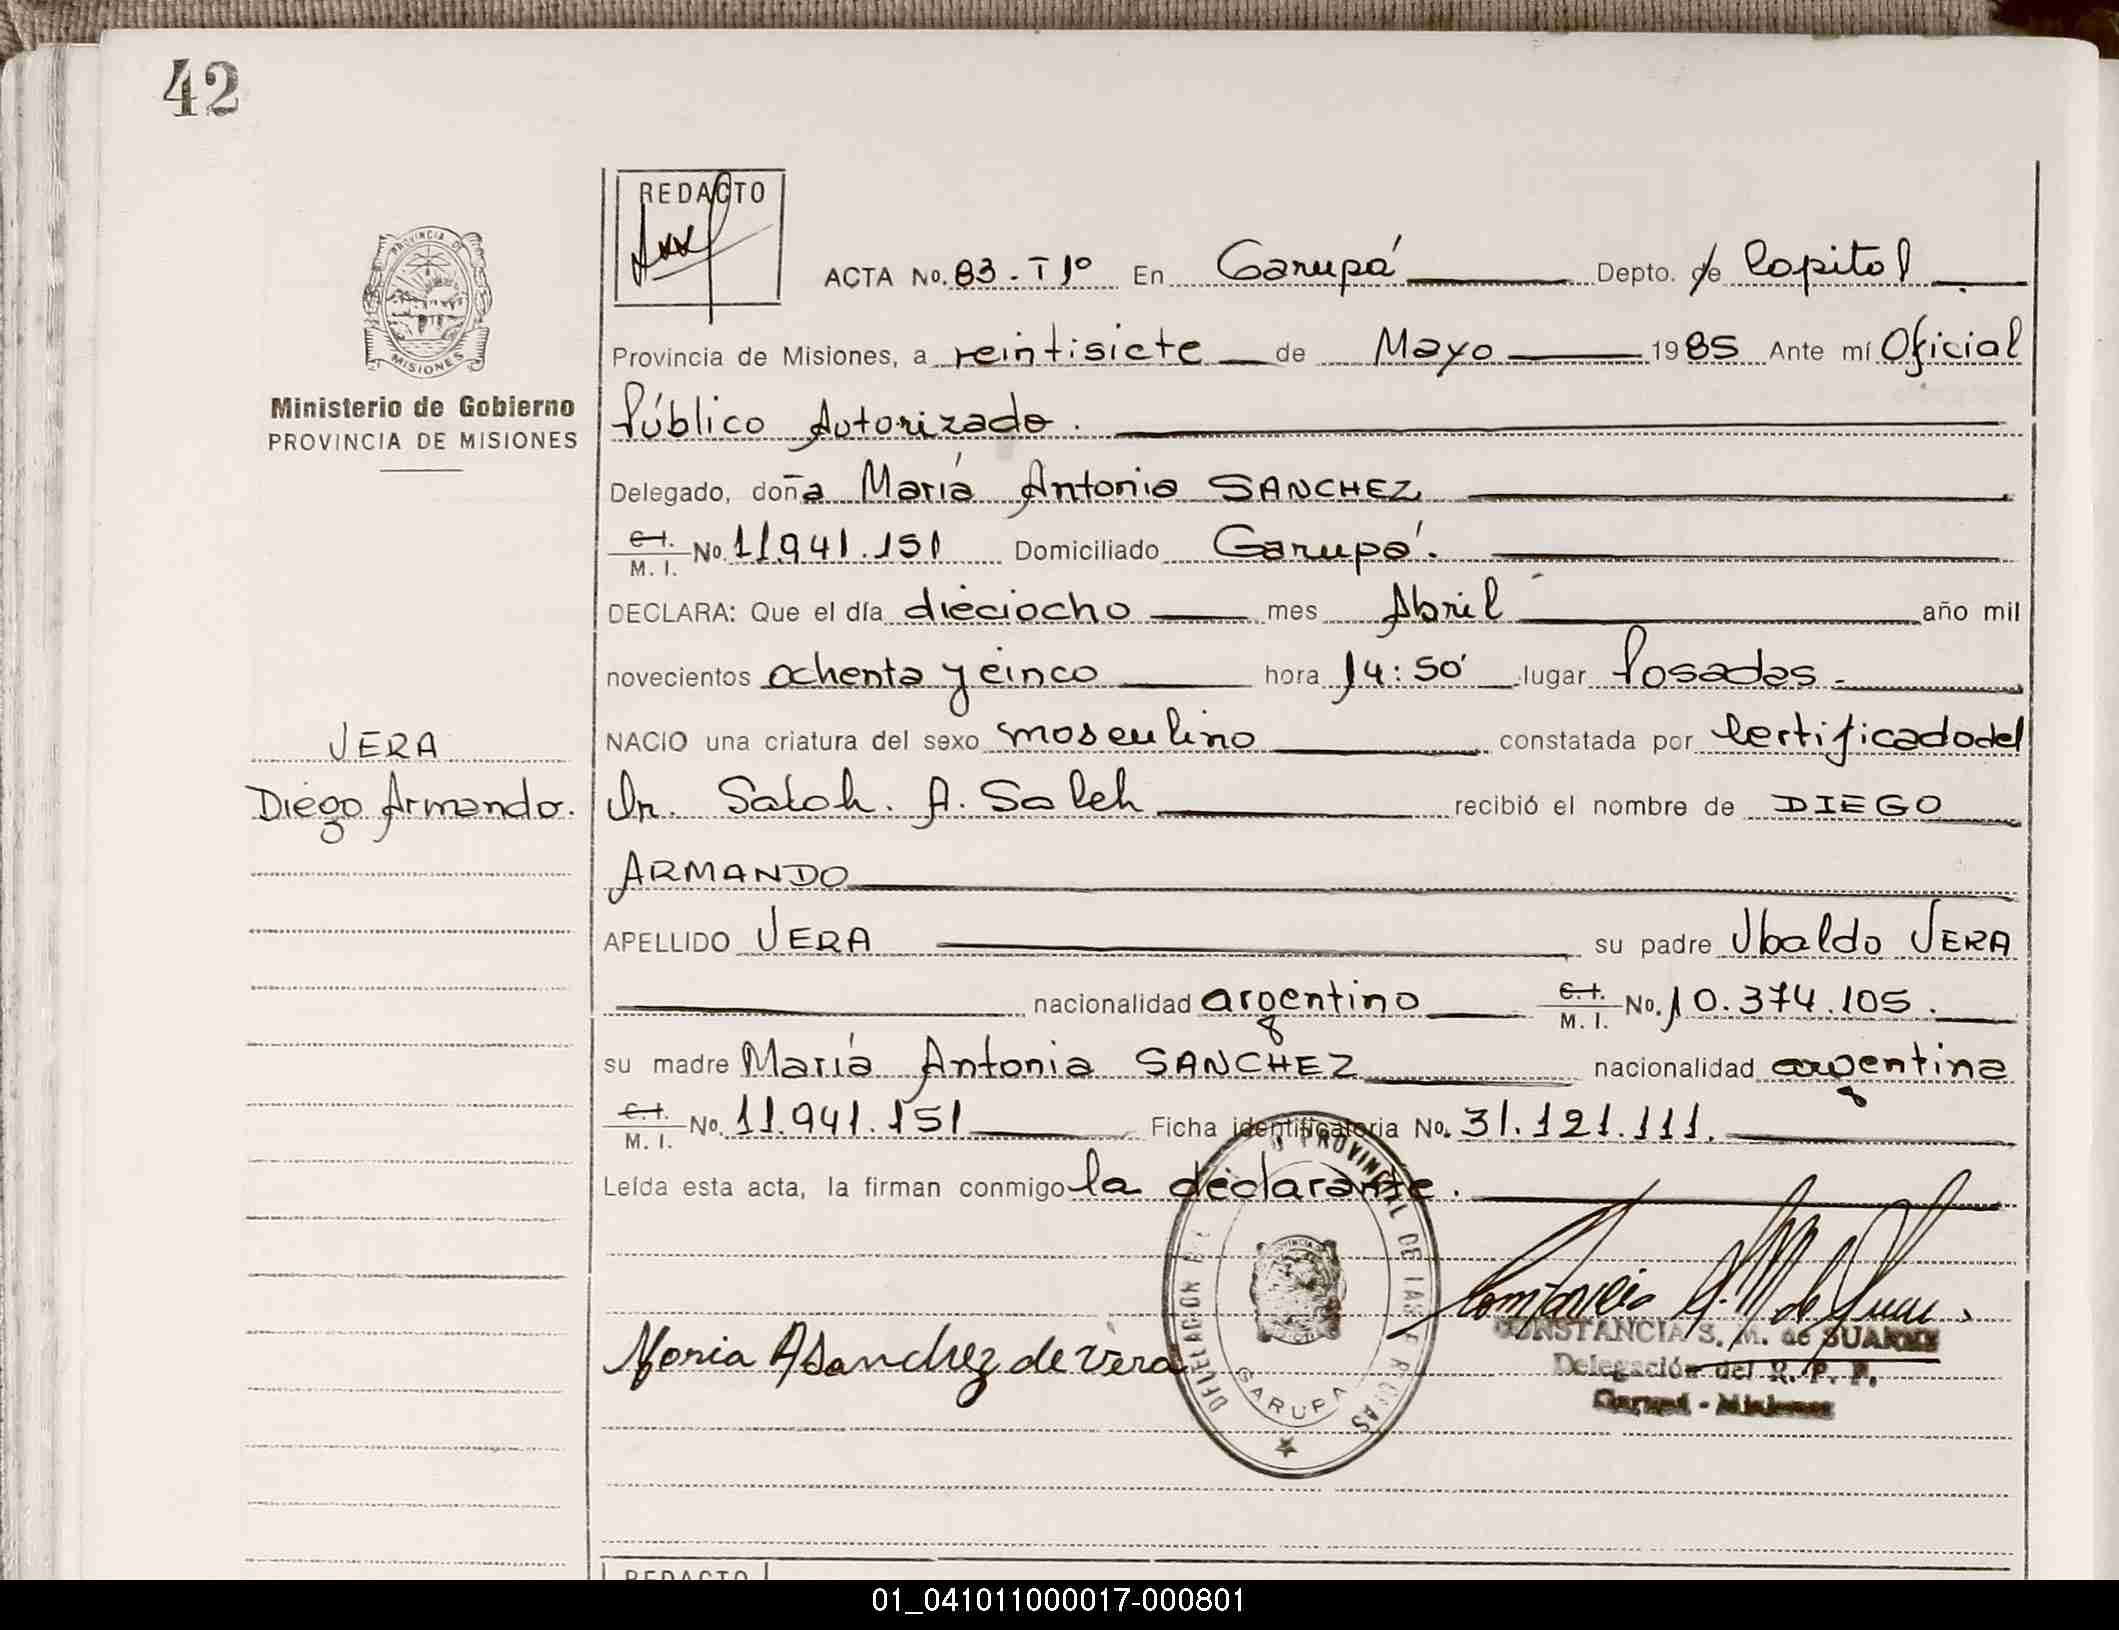 42
REDACTO
ACTA No. 83-Tº1º En Garupá Depto. de Capital
PROVINCIA DE
MISIONES
Ministerio de Gobierno
PROVINCIA DE MISIONES
Provincia de Misiones, a veintisiete de Mayo 1985 Ante mí Oficial
Público Autorizado.
Delegado, doña María Antonia SANCHEZ
C.I. M. I. No. 11.941.151 Domiciliado Garupá.
DECLARA: Que el día dieciocho mes Abril año mil
novecientos ochenta y cinco hora 14:50' lugar Posadas.-
NACIO una criatura del sexo masculino constatada por Certificado del
VERA
Diego Armando.
Dr. Saleh. A. Saleh recibió el nombre de DIEGO
ARMANDO
APELLIDO VERA su padre Ubaldo VERA
nacionalidad argentino C.I. M. I. No. 10.374.105.
su madre María Antonia SANCHEZ nacionalidad argentina
C.I. M. I. No. 11.941.151 Ficha identificatoria No. 31.121.111.
Leída esta acta, la firman conmigo la declarante.
PROVINCIAL DE LAS PERSONAS
GARUPA
María A Sanchez de Vera
CONSTANCIA S. M. de SUAREZ
Delegación del R. P. P.
Garupá - Misiones
REDACTO
01_041011000017-000801